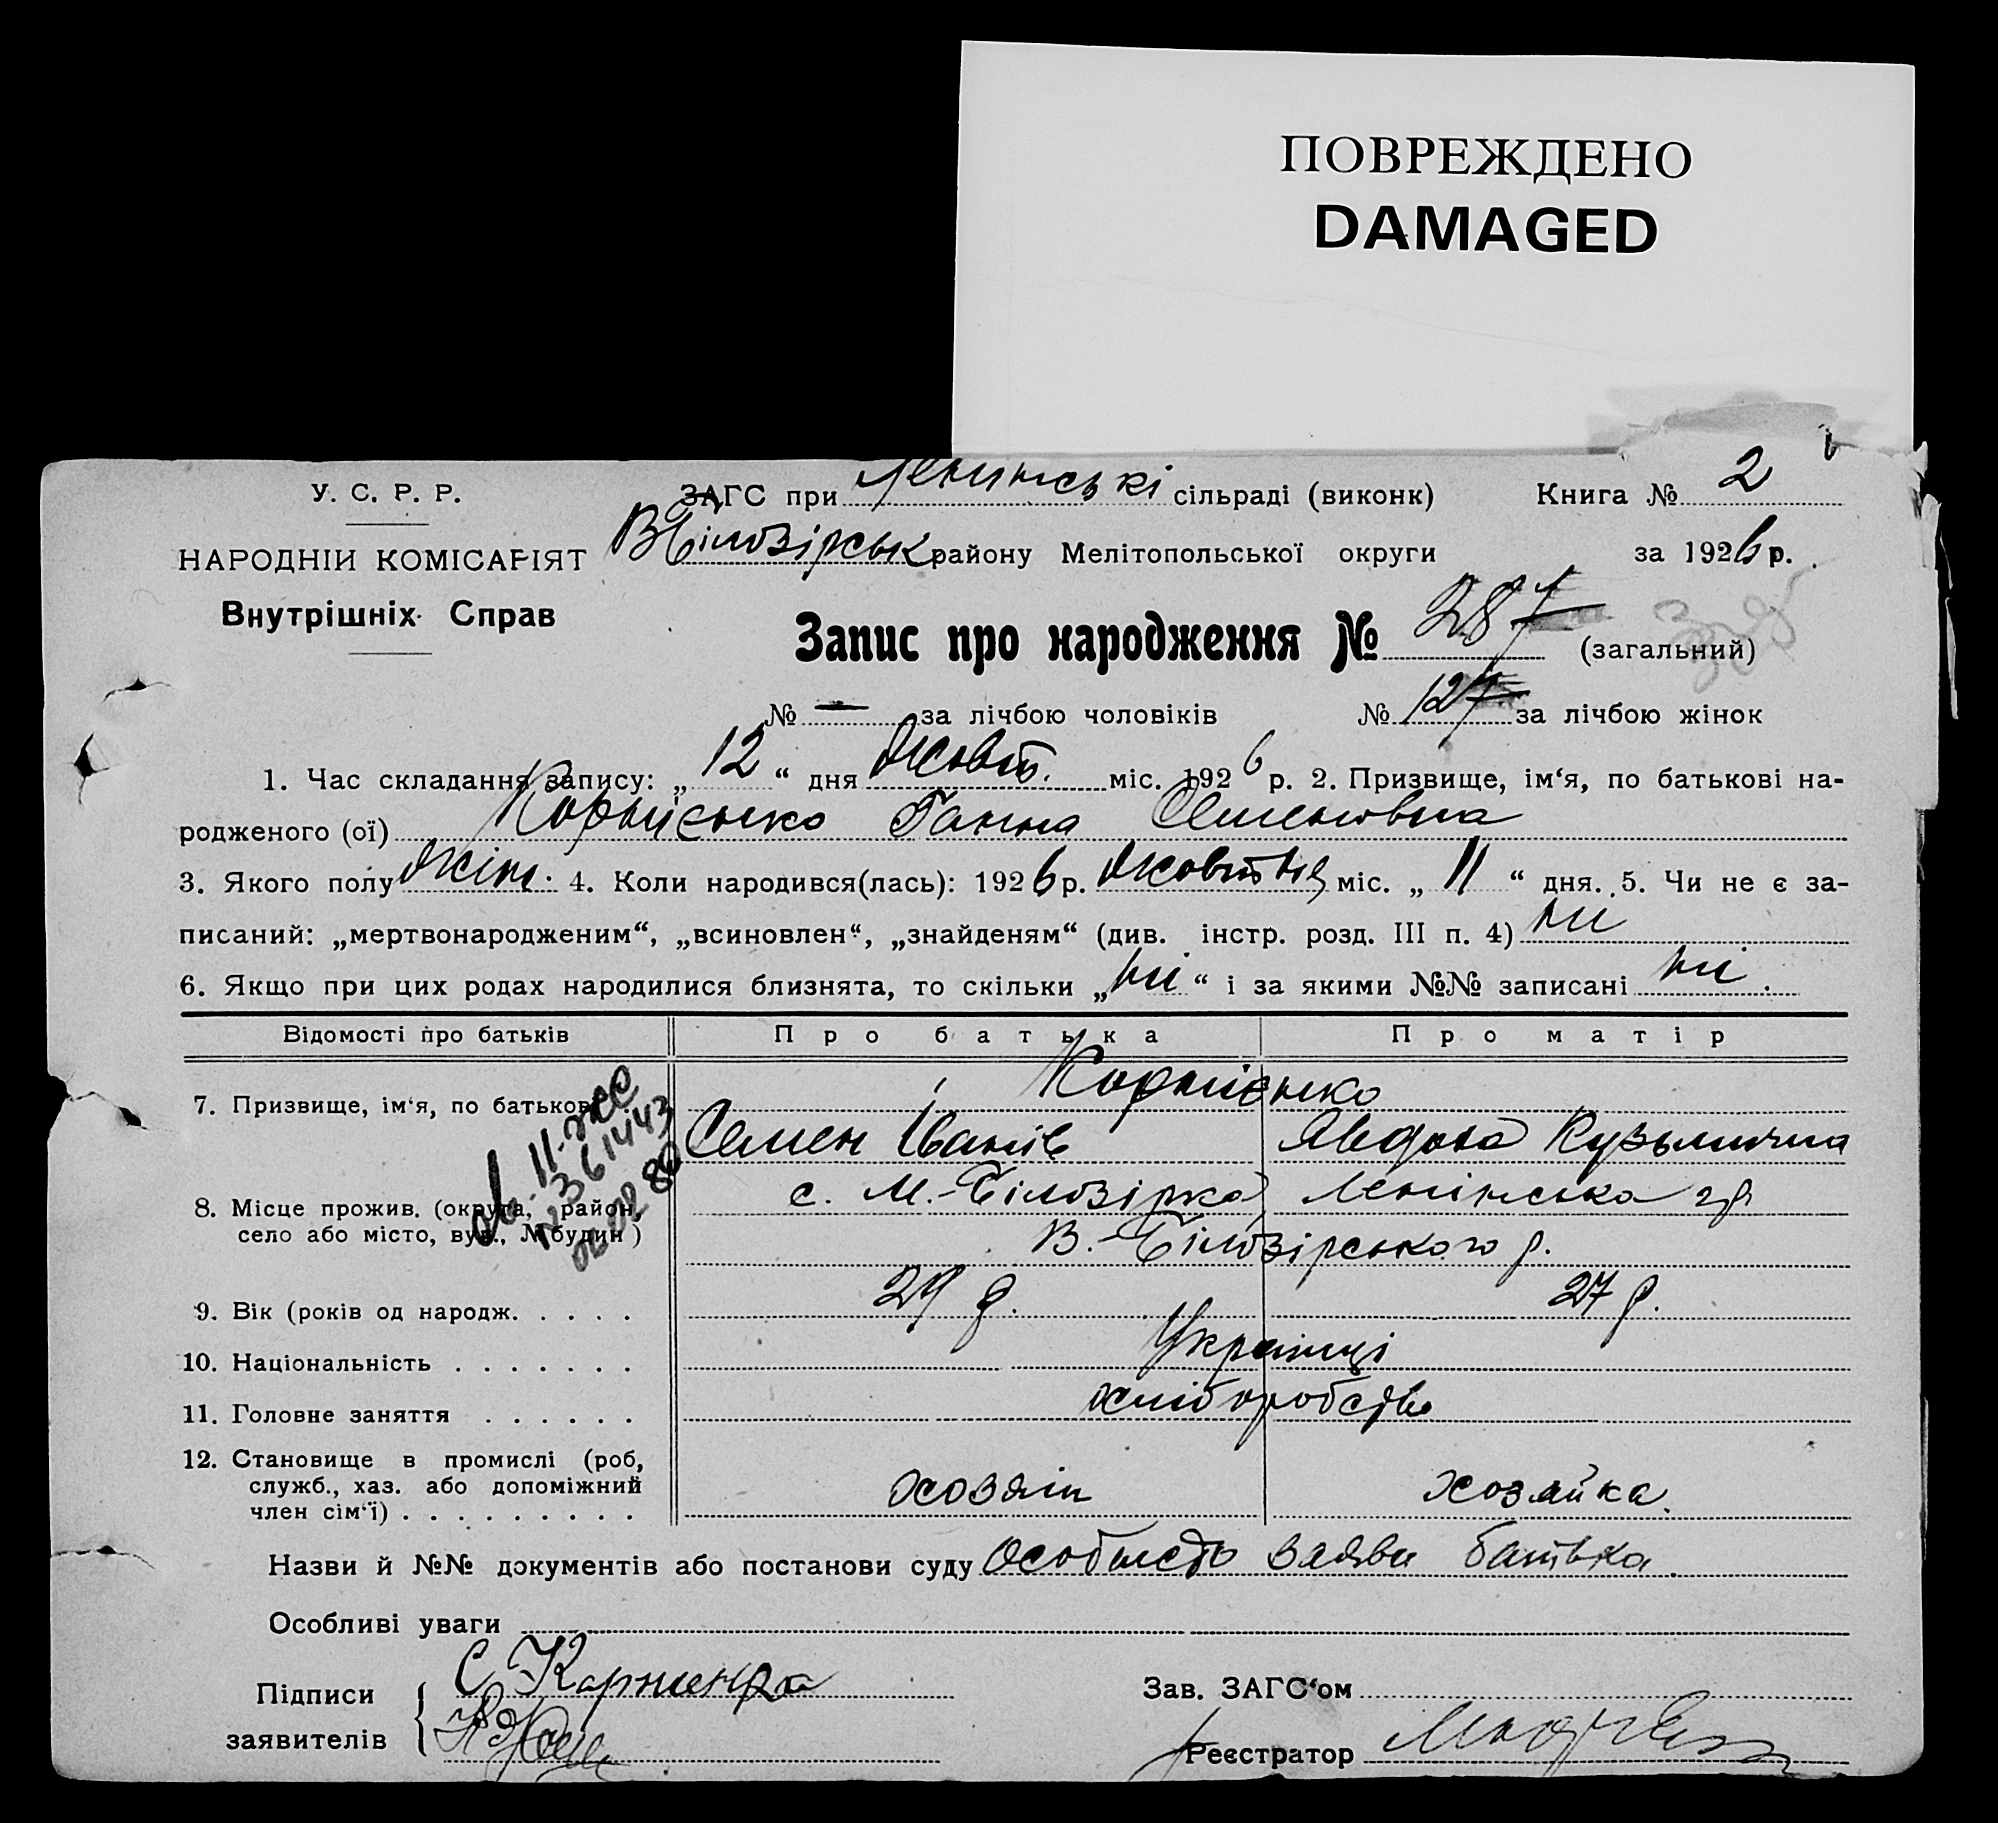 ПОВРЕЖДЕНО
DAMAGED
У. С. Р. Р.
НАРОДНІЙ КОМІСАРІЯТ
Внутрішніх Справ
ЗАГС при Ленинські сільраді (виконк)
Книга № 2
В Білозірськ району Мелітопольської округи
за 1926 р.
Запис про народження № 287 (загальний)
№ — за лічбою чоловіків № 127 за лічбою жінок
1. Час складання запису: „12“ дня Жовт. міс. 1926 р. 2. Призвище, ім‘я, по батькові на-
родженого (ої) Корнієнко Ганна Семеновна
3. Якого полу жін. 4. Коли народився(лась): 1926 р. Жовтня міс. „11“ дня. 5. Чи не є за-
писаний: „мертвонародженим“, „всиновлен“, „знайденям“ (див. інстр. розд. III п. 4) ни
6. Якщо при цих родах народилися близнята, то скільки „ні“ і за якими №№ записані ні.
Відомості про батьків Про батька Про матір
7. Призвище, ім‘я, по батькові Корнієнко
Семен Іванів Явдоха Кузьминична
11
N 361443
02 80
8. Місце прожив. (округа, район,
село або місто, вул., № будин)
с. М.-Білозірка, Ленінська
В.-Білозірського р.
9. Вік (років од народж. . . . . 29 р. 27 р.
10. Національність . . . . . . . Українці
11. Головне заняття . . . . . . хліборобств
12. Становище в промислі (роб,
служб., хаз. або допоміжний
член сім‘ї) . . . . . . . . . хозяїн хозяйка.
Назви й №№ документів або постанови суду Особисто заява батька.
Особливі уваги
Підписи
заявителів
С Карниенка
Зав. ЗАГС‘ом
Реєстратор